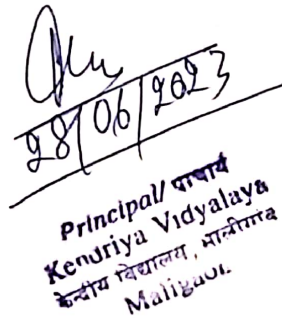 28/06/2023
Principal/ प्राचार्य
Kendriya Vidyalaya
केन्द्रीय विद्यालय, मालीगांव
Maligaon